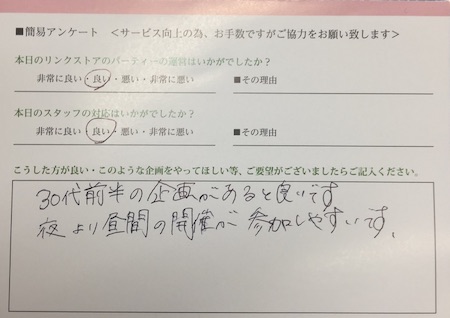 ■簡易アンケート　＜サービス向上の為、お手数ですがご協力をお願い致します＞
本日のリンクストアのパーティーの運営はいかがでしたか？
非常に良い・良い・悪い・非常に悪い　■その理由
本日のスタッフの対応はいかがでしたか？
非常に良い・良い・悪い・非常に悪い　■その理由
こうした方が良い・このような企画をやってほしい等、ご要望がございましたらご記入ください。
30代前半の企画があると良いです
夜より昼間の開催が参加しやすいです、